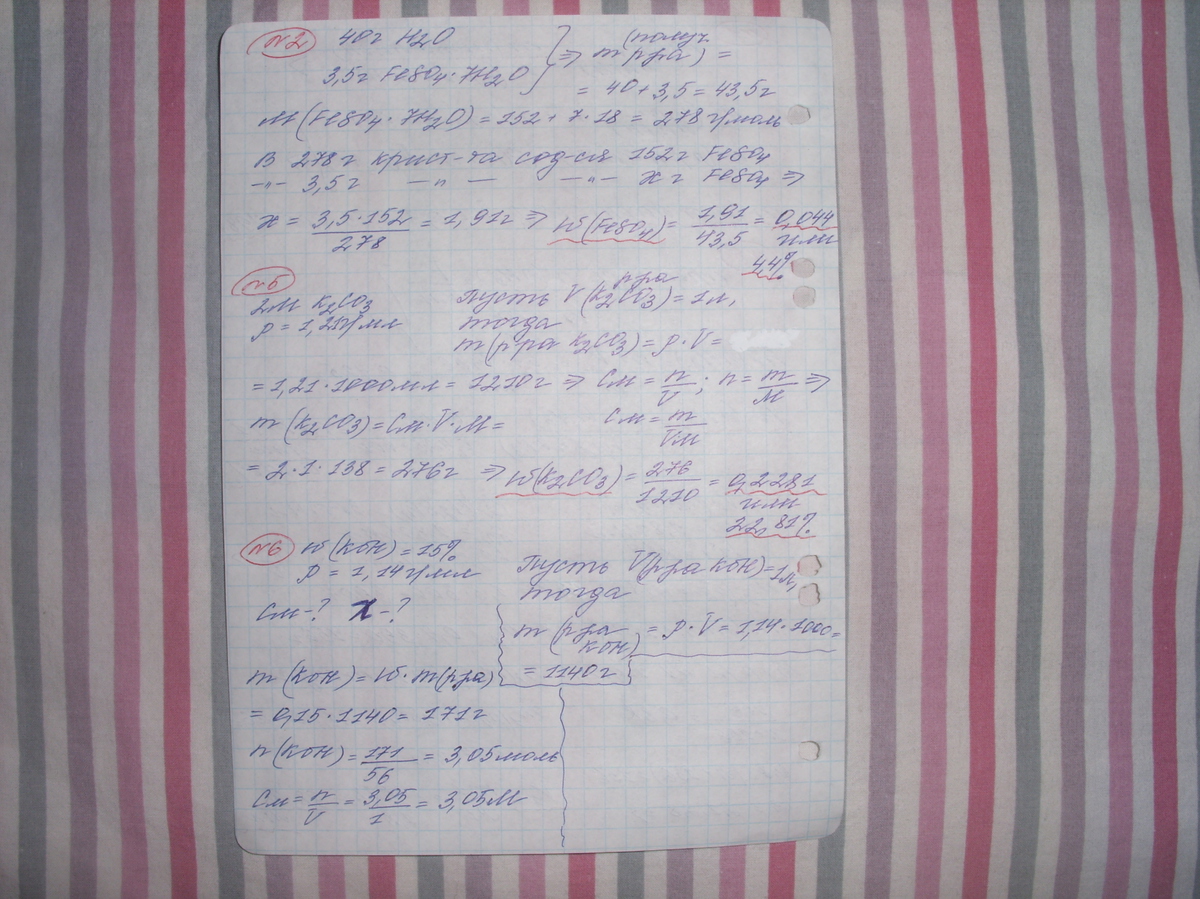 №2 40г H2O
3,5г FeSO4·7H2O
} ⇒ m(получ. р-ра) =
= 40 + 3,5 = 43,5г
M(FeSO4·7H2O) = 152 + 7·18 = 278 г/моль
В 278г крист-та сод-ся 152г FeSO4
—"— 3,5г —"— —"— x г FeSO4 ⇒
x = 3,5·152/278 = 1,91г ⇒ ω(FeSO4) = 1,91/43,5 = 0,044
или
4,4%
№5
2М K2CO3
ρ = 1,21г/мл
Пусть V(р-ра K2CO3) = 1л,
тогда
m(р-ра K2CO3) = ρ·V =
= 1,21·1000мл = 1210г ⇒ См = n/V; n = m/M ⇒
m(K2CO3) = См·V·M =
См = m/VM
= 2·1·138 = 276г ⇒ ω(K2CO3) = 276/1210 = 0,2281
или
22,81%
№6 ω(KOH) = 15%
ρ = 1,14г/мл
См-? X-?
Пусть V(р-ра KOH) = 1л,
тогда
m(р-ра KOH) = ρ·V = 1,14·1000 =
= 1140г
m(KOH) = ω·m(р-ра)
= 0,15·1140 = 171г
n(KOH) = 171/56 = 3,05моль
См = n/V = 3,05/1 = 3,05М